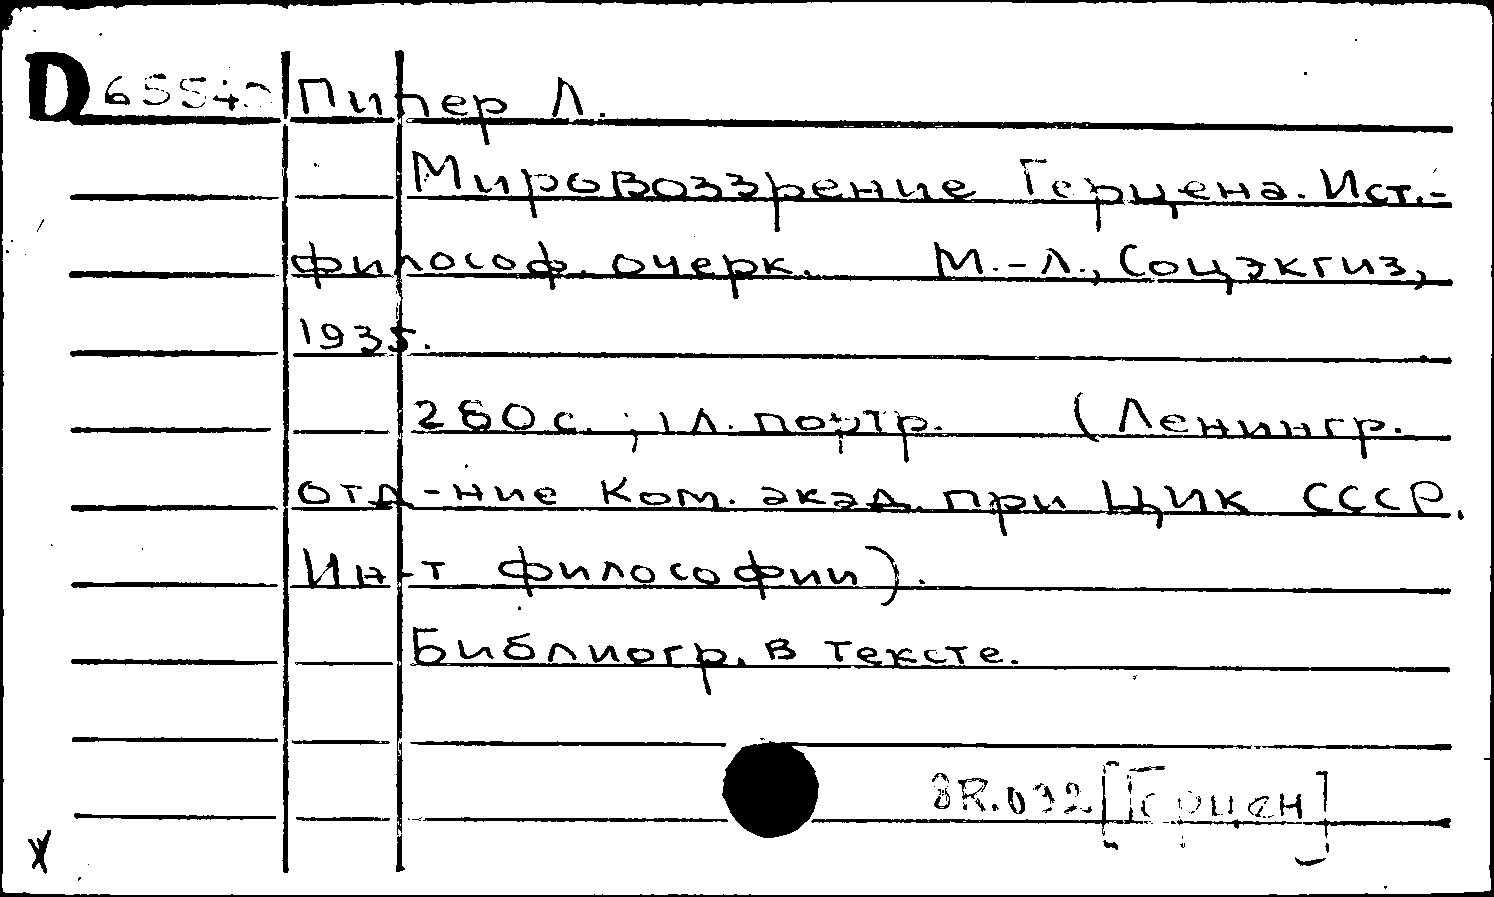 Пипер Л.
Мировоззрение Герцена. Ист.-
философ. очерк. М.-Л., Соцэкгиз,
1935.
260 с. ; 1 л. портр. (Ленингр.
отд-ние Ком. акад. при ЦИК СССР.
Ин-т философии).
Библиогр. в тексте.
8R.092 [Герцен]